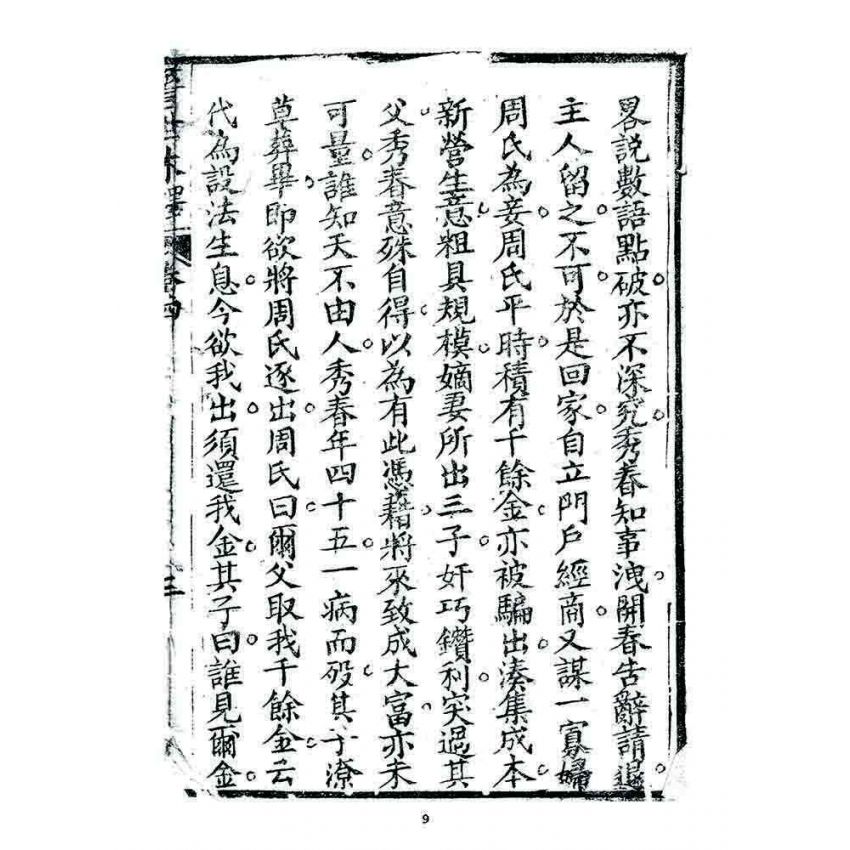 畧說數語點破亦不深究秀春知事洩開春告辭請退
主人留之不可於是回家自立門戶經商又謀一寡婦
周氏為妾周氏平時積有千餘金亦被騙出湊集成本
新營生意粗具規模嫡妻所出三子奸巧鑽利突過其
父秀春意殊自得以為有此憑藉將來致成大富亦未
可量誰知天不由人秀春年四十五一病而歿其子潦
草葬畢即欲將周氏逐出周氏曰爾父取我千餘金云
代為設法生息今欲我出須還我金其子曰誰見爾金
卷四
三
9